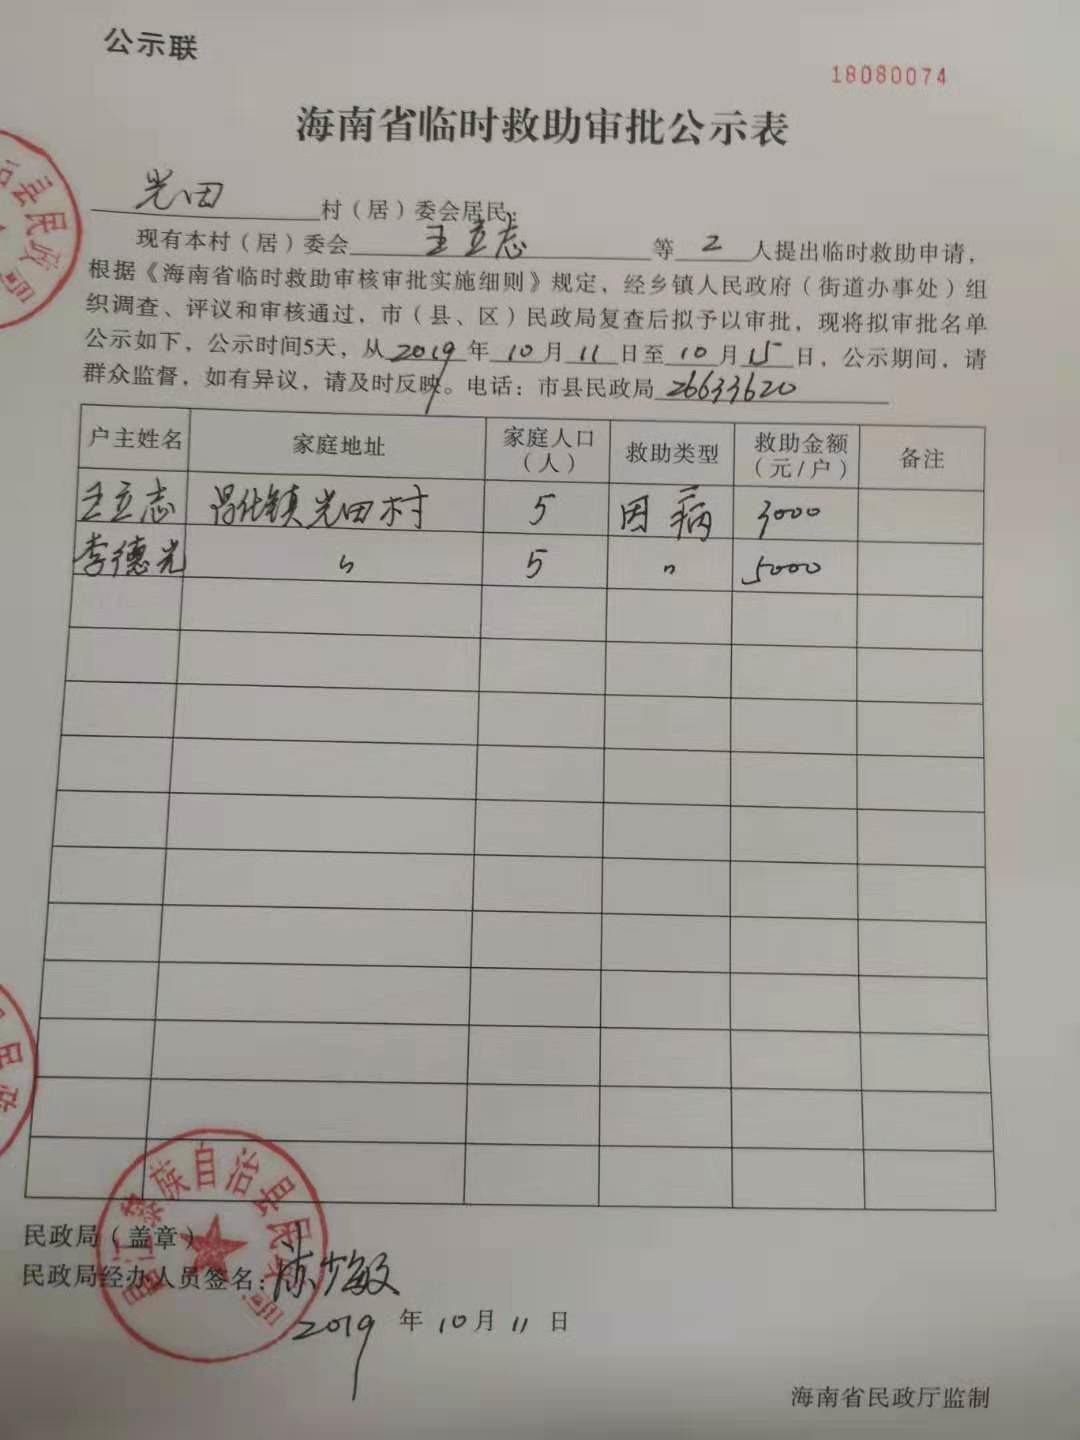 公示联
18080074
海南省临时救助审批公示表
光田村（居）委会居民：
现有本村（居）委会王立志等2人提出临时救助申请，
根据《海南省临时救助审核审批实施细则》规定，经乡镇人民政府（街道办事处）组
织调查、评议和审核通过，市（县、区）民政局复查后拟予以审批，现将拟审批名单
公示如下，公示时间5天，从2019年10月11日至10月15日，公示期间，请
群众监督，如有异议，请及时反映。电话：市县民政局26633620
户主姓名 家庭地址 家庭人口（人） 救助类型 救助金额（元/户） 备注
王立志 昌化镇光田村 5 因病 3000
李德光 〃 5 〃 5000
民政局（盖章）
昌江黎族自治县民政局
民政局经办人员签名：陈少敏
2019年10月11日
海南省民政厅监制